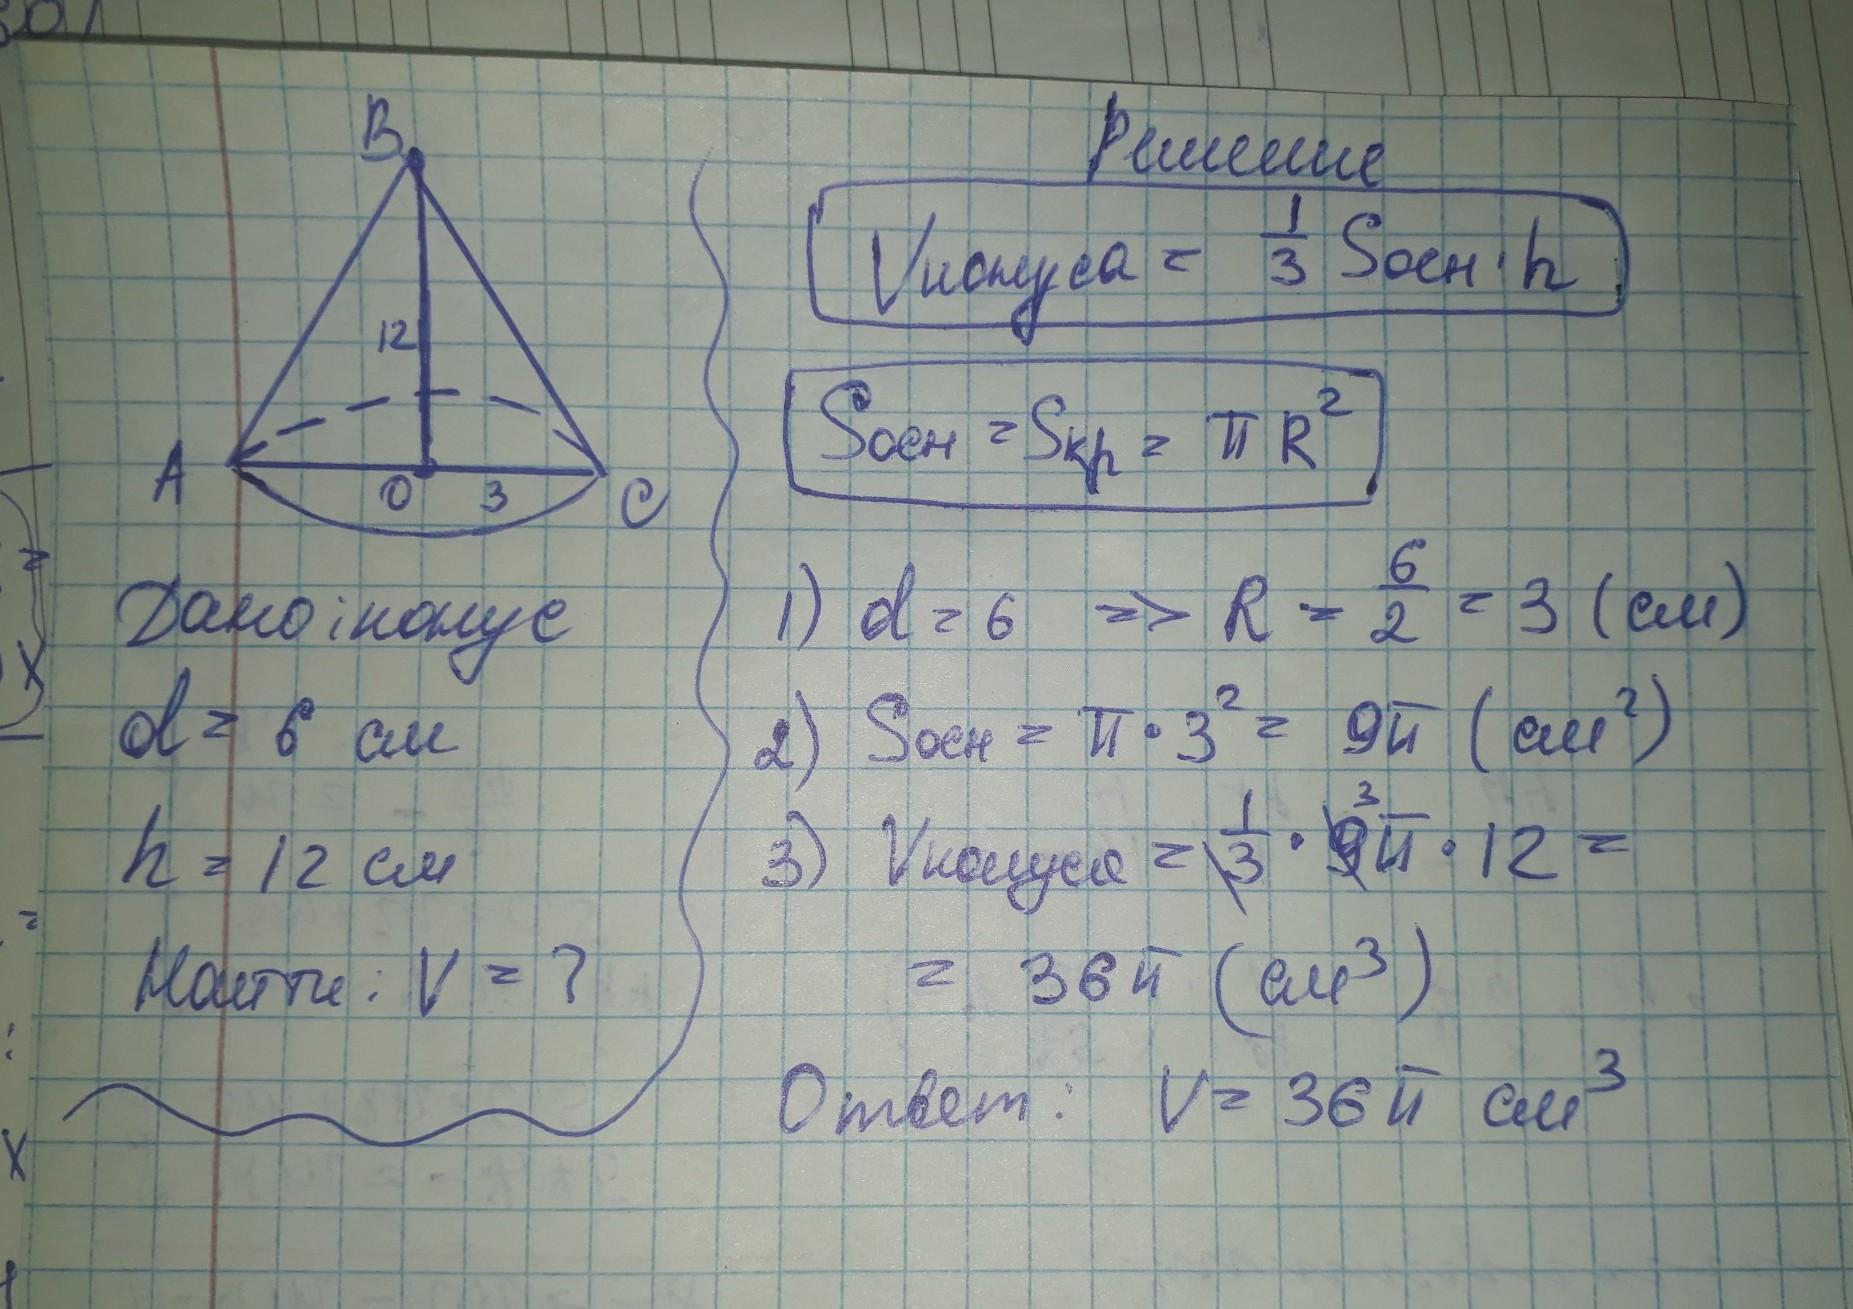 B
12
A
O
3
C
Дано: конус
d = 6 см
h = 12 см
Найти: V = ?
Решение
Vконуса = 1/3 Sосн · h
Sосн = Sкр = π R²
1) d = 6 => R = 6/2 = 3 (см)
2) Sосн = π · 3² = 9π (см²)
3) Vконуса = 1/3 · 9³π · 12 =
= 36π (см³)
Ответ: V = 36π см³